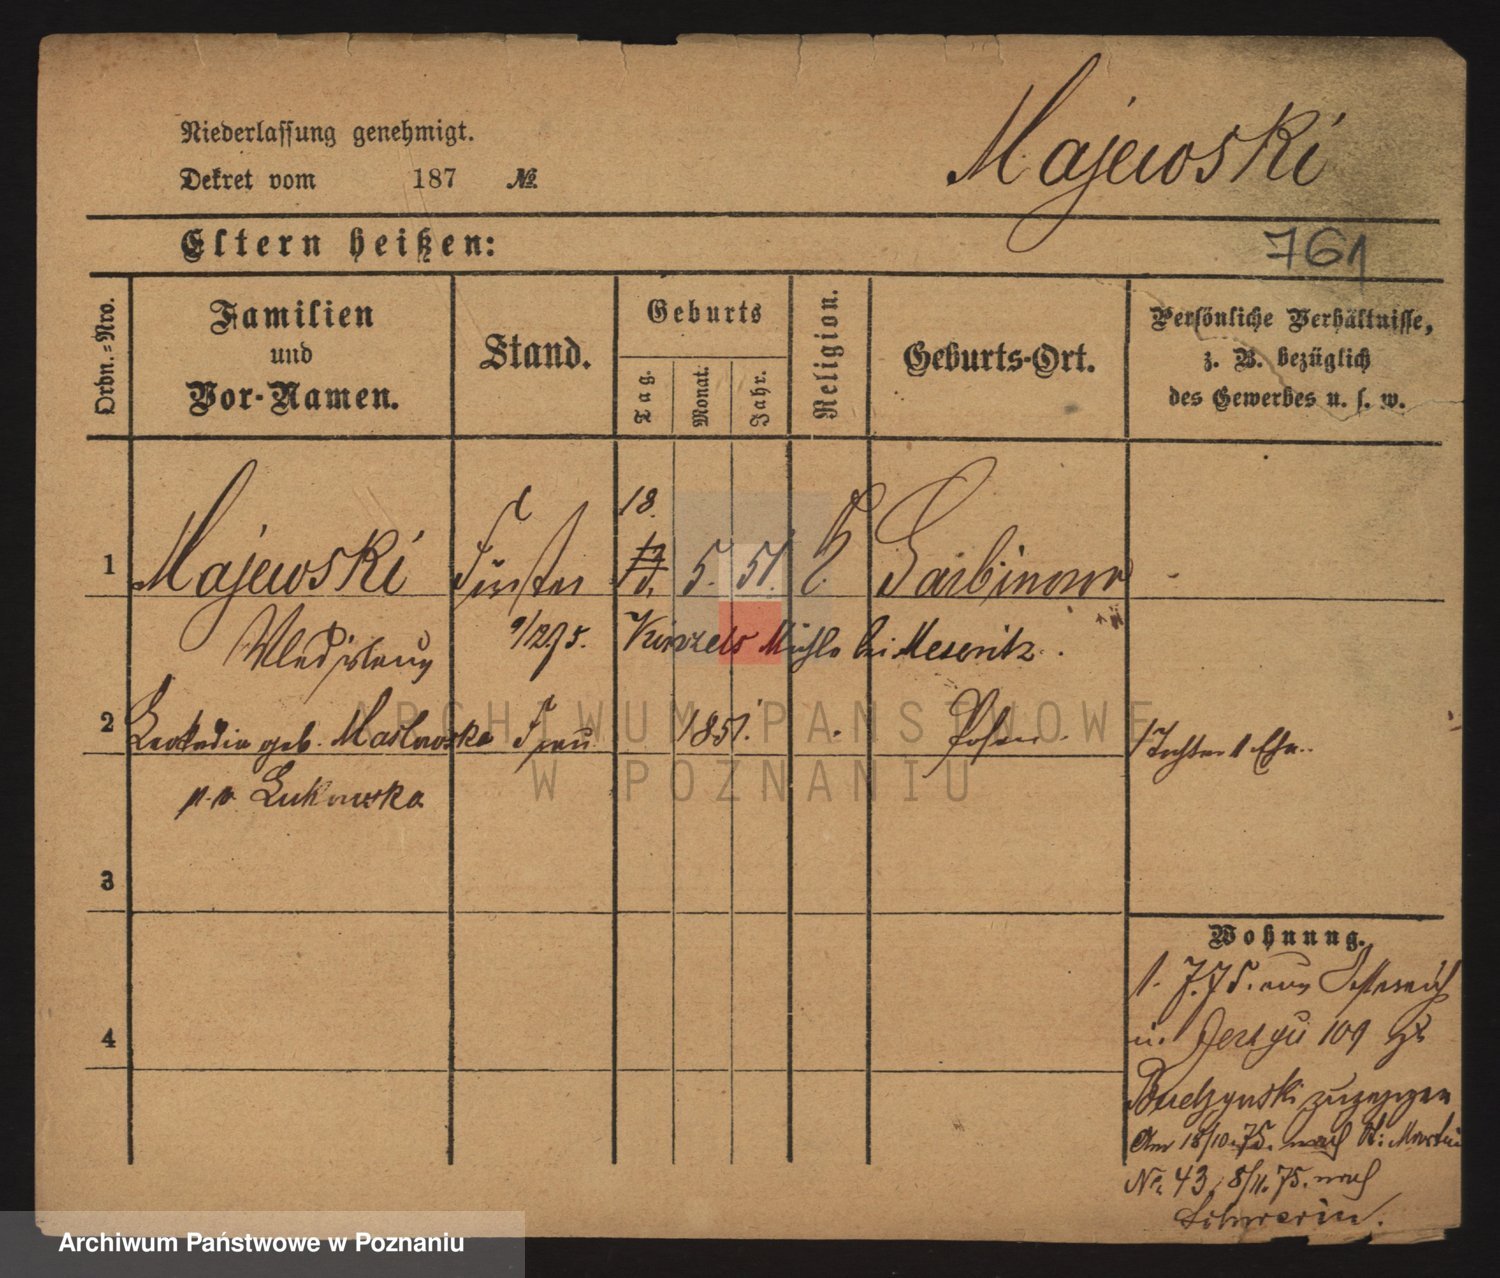 Majewski
Niederlassung genehmigt.
Dekret vom 187 No.
Eltern heißen:
761
Ordn.-Nro.
Familien
und
Vor-Namen.
Stand.
Geburts
Tag.
Monat.
Jahr.
Religion.
Geburts-Ort.
Persönliche Verhältnisse,
z. B. bezüglich
des Gewerbes u. s. w.
18.
1 Majewski 5. 51.
9/12 75. Mühle bei Meseritz.
2 Leokadia geb. Maslowska Frau 1851. Posen. 1 Tochter 1 Ehe.
p. v. Lukowska
3
Wohnung.
1. 7. 75. aus
4
u. 109
Budzynski zugezogen
Am 18/10. 75. nach St. Martin
No. 43, 8/11. 75. nach
Schwerin.
ARCHIWUM PAŃSTWOWE
W POZNANIU
Archiwum Państwowe w Poznaniu